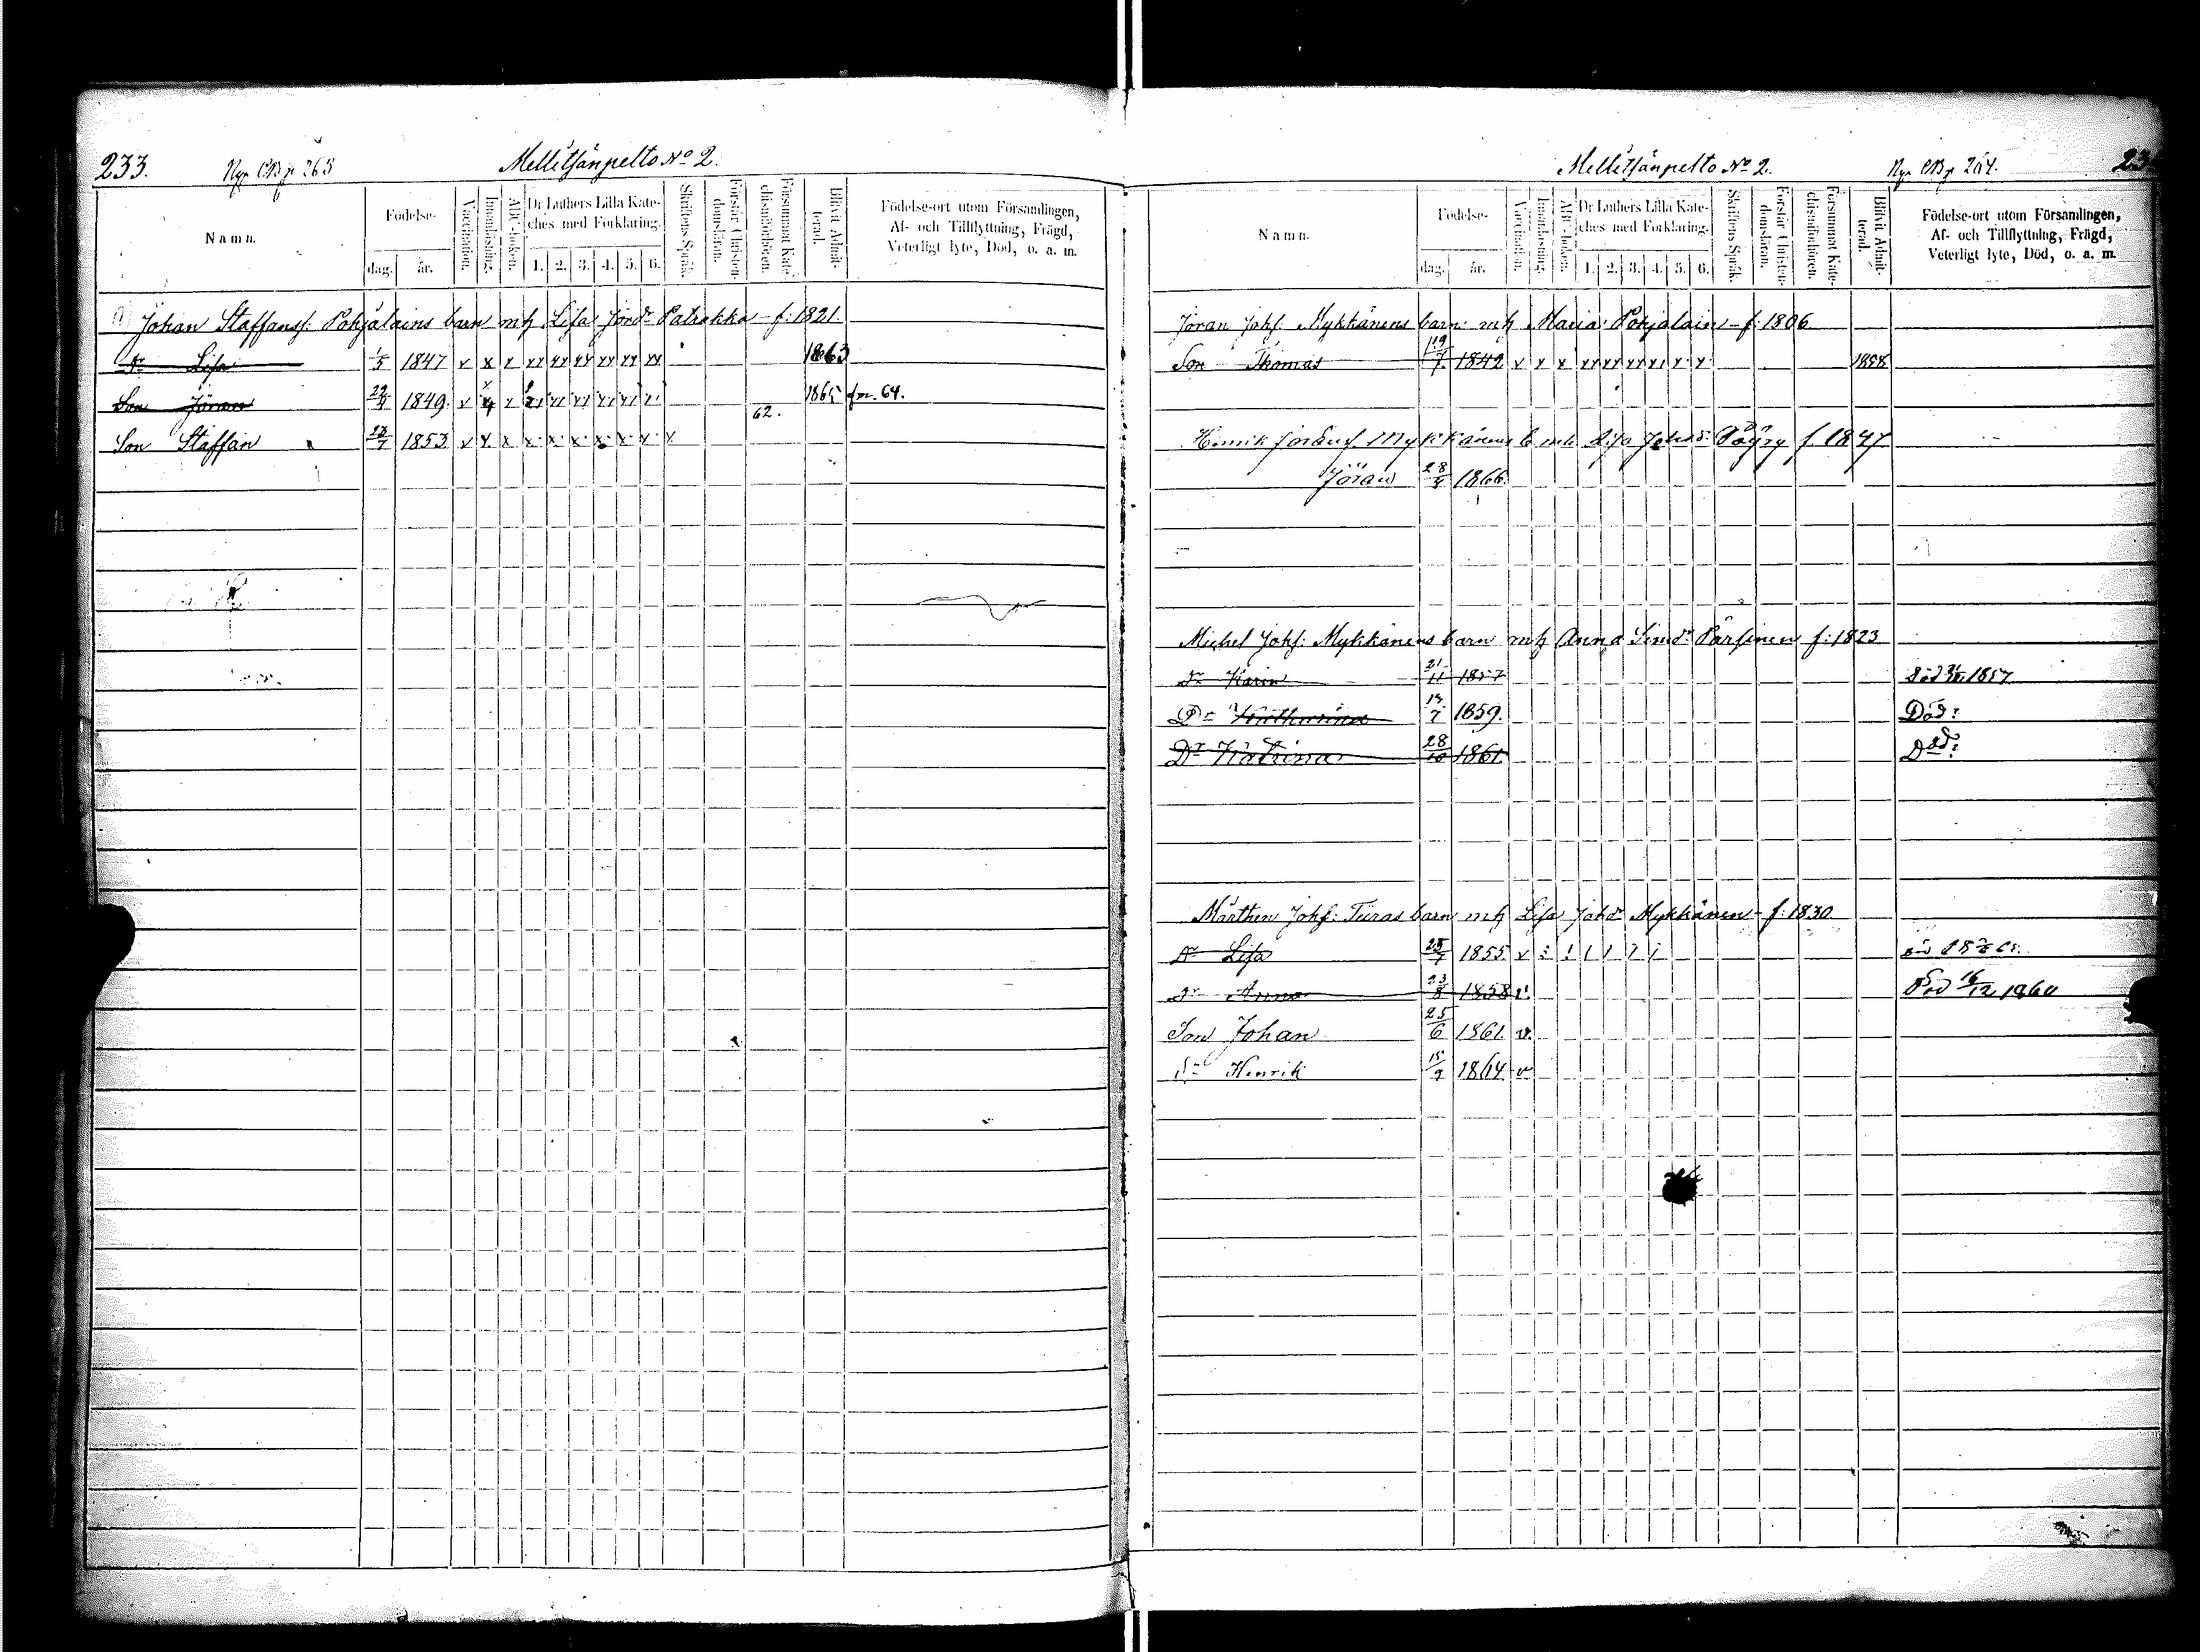 233. Nya CB p 365 Mellitsänpelto No 2.
Namn. Födelse- dag. år. Vaccination. Innanläsning. ABC-boken. Dr Luthers Lilla Kateches med Förklaring. 1. 2. 3. 4. 5. 6. Skriftens Språk. Förstår Christendomsläran. Försummat Katechismiförhören. Blivit Admitterad. Födelse-ort utom Församlingen, Af- och Tillflyttning, Frägd, Veterligt lyte, Död, o. a. m.
Johan Staffansf: Pohjalains barn mh Lisa Jörd: Patrakka - f: 1821
Dr Lisa 1/5 1847 v x x xx xx xx xx xx xx 1863
Son Jöran 22/4 1849 v x x xx xx xx xx 62. 1865 fm. 64.
Son Staffan 23/7 1853 v x x x x x x x x x
Mellitsänpelto No 2. Nya CB p 264. 23
Namn. Födelse- dag. år. Vaccination. Innanläsning. ABC-boken. Dr Luthers Lilla Kateches med Förklaring. 1. 2. 3. 4. 5. 6. Skriftens Språk. Förstår Christendomsläran. Försummat Katechismiförhören. Blivit Admitterad. Födelse-ort utom Församlingen, Af- och Tillflyttning, Frägd, Veterligt lyte, Död, o. a. m.
Jöran Johf: Mykkänens barn: mh Maria Pohjalain - f: 1806
Son Thomas 19/7 1842 v x x xx xx xx x x x 1858
Henrik Jöransf Mykkänens b mh Lisa Johsd: Pöyry f. 1847
Jöran 28/9 1866
Michel Johf: Mykkänens barn mh Anna Simdr Pärsinen f: 1823
Dr Karin 21/11 1857 Död 1857
Dr Katharina 13/7 1859. Död:
Dr Katrina 28/10 1861 Död:
Mårthen Johf: Turas barn mh Lisa Johd Mykkänen - f: 1830
Dr Lisa 25/7 1855 v
Dr Anna 23/8 1858 v Död 16/12 1860
Son Johan 25/6 1861 v.
Sn Henrik 15/9 1864 v